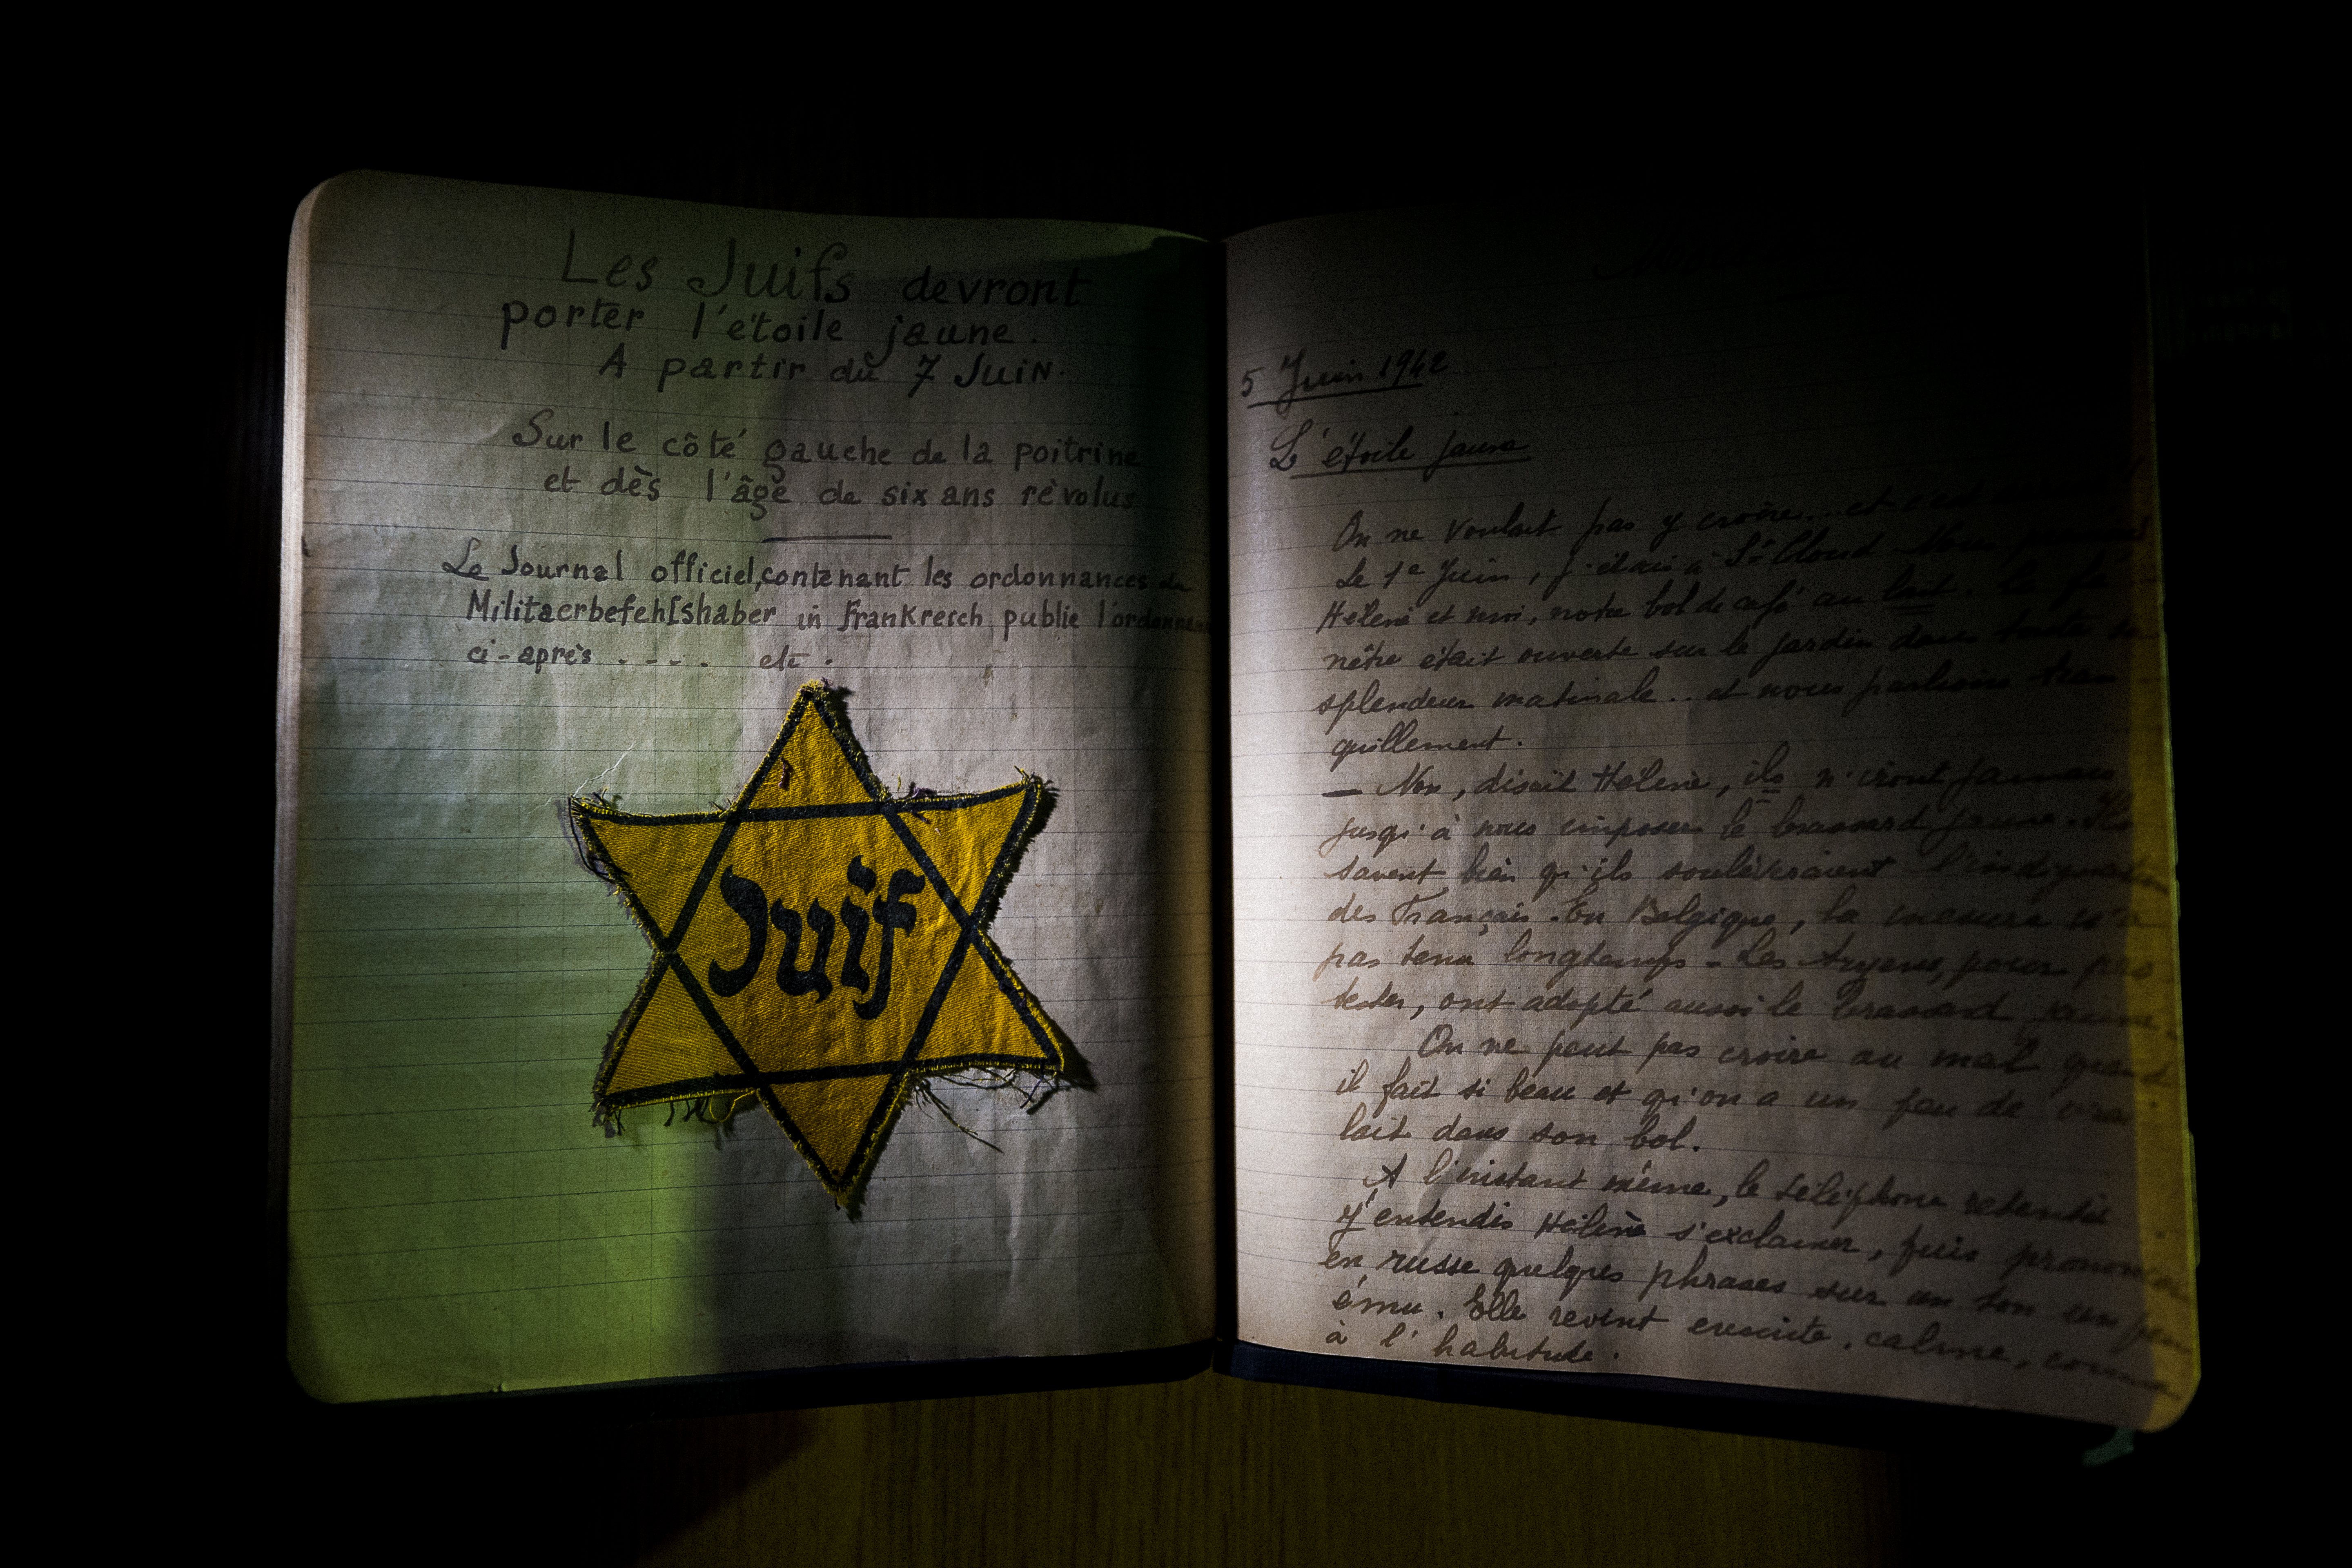 Les Juifs devront
porter l'étoile jaune.
A partir du 7 Juin.
Sur le côté gauche de la poitrine
et dès l'âge de six ans révolus
Le Journal officiel, contenant les ordonnances du
Militaerbefehlshaber in Frankreich publie l'ordonnance
ci-après . - - . etc .
Juif
5 Juin 1942
L'étoile jaune
On ne voulait pas y croire... et c'est
Le 1e Juin, j'étais à St Cloud
Hélène et moi, notre bol de café au lait.
nêtre était ouverte sur le jardin dans toute sa
splendeur matinale... et nous parlions tran
quillement.
— Non, disait Hélène, ils n'iront jamais
jusqu'à nous imposer le brassard jaune. Ils
savent bien qu'ils soulèveraient l'indignation
des Français. En Belgique, la mesure n'a
pas tenu longtemps - Les Aryens, pour pro
tester, ont adopté aussi le brassard jaune.
On ne peut pas croire au mal quand
il fait si beau et qu'on a un peu de vrai
lait dans son bol.
A l'instant même, le téléphone retentit
J'entendis Hélène s'exclamer, puis prononcer
en russe quelques phrases sur un ton un peu
ému. Elle revint ensuite, calme, comme
à l'habitude.